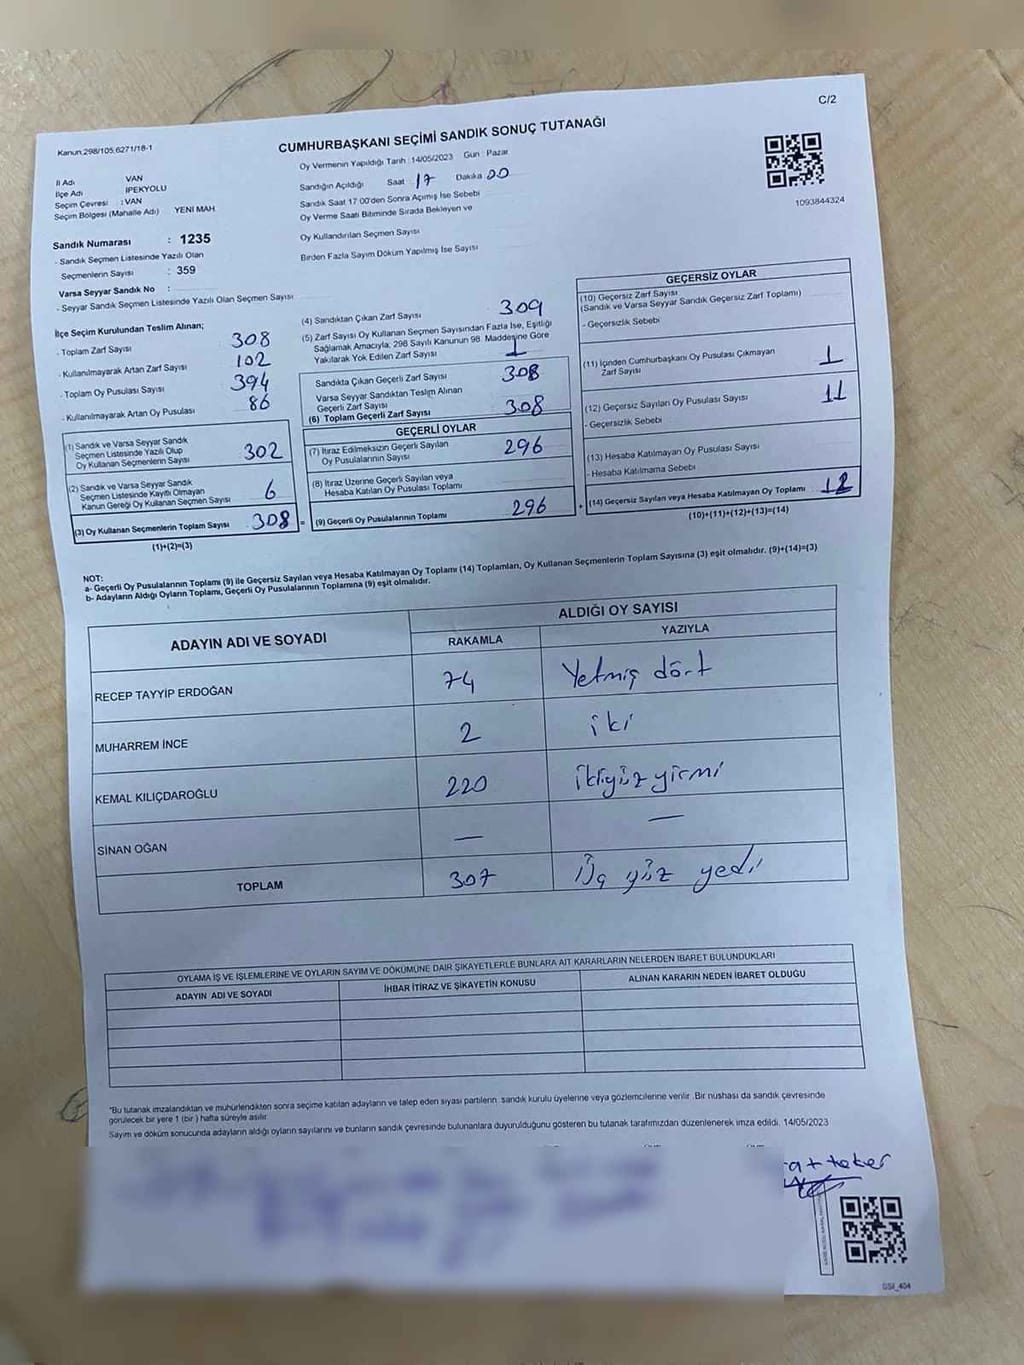 C/2
Kanun:298/105,6271/18-1
CUMHURBAŞKANI SEÇİMİ SANDIK SONUÇ TUTANAĞI
Oy Vermenin Yapıldığı Tarih :14/05/2023 Gün : Pazar
İl Adı VAN
İlçe Adı İPEKYOLU
Seçim Çevresi : VAN
Seçim Bölgesi (Mahalle Adı) YENİ MAH
Sandığın Açıldığı Saat 17 Dakika 00
Sandık Saat 17:00'den Sonra Açımış İse Sebebi
Oy Verme Saati Bitiminde Sırada Bekleyen ve
Oy Kullandırılan Seçmen Sayısı
Birden Fazla Sayım Döküm Yapılmış İse Sayısı
1093844324
Sandık Numarası : 1235
- Sandık Seçmen Listesinde Yazılı Olan
Seçmenlerin Sayısı : 359
Varsa Seyyar Sandık No :
- Seyyar Sandık Seçmen Listesinde Yazılı Olan Seçmen Sayısı
İlçe Seçim Kurulundan Teslim Alınan;
- Toplam Zarf Sayısı 308
- Kullanılmayarak Artan Zarf Sayısı 102
- Toplam Oy Pusulası Sayısı 394
- Kullanılmayarak Artan Oy Pusulası 86
(1) Sandık ve Varsa Seyyar Sandık
Seçmen Listesinde Yazılı Olup
Oy Kullanan Seçmenlerin Sayısı 302
(2) Sandık ve Varsa Seyyar Sandık
Seçmen Listesinde Kayıtlı Olmayan
Kanun Gereği Oy Kullanan Seçmen Sayısı 6
(3) Oy Kullanan Seçmenlerin Toplam Sayısı 308 =
(1)+(2)=(3)
(4) Sandıktan Çıkan Zarf Sayısı 309
(5) Zarf Sayısı Oy Kullanan Seçmen Sayısından Fazla İse, Eşitliği
Sağlamak Amacıyla, 298 Sayılı Kanunun 98. Maddesine Göre
Yakılarak Yok Edilen Zarf Sayısı 1
Sandıkta Çıkan Geçerli Zarf Sayısı 308
Varsa Seyyar Sandıktan Teslim Alınan
Geçerli Zarf Sayısı
(6) Toplam Geçerli Zarf Sayısı 308
GEÇERLİ OYLAR
(7) İtiraz Edilmeksizin Geçerli Sayılan
Oy Pusulalarının Sayısı 296
(8) İtiraz Üzerine Geçerli Sayılan veya
Hesaba Katılan Oy Pusulası Toplamı
(9) Geçerli Oy Pusulalarının Toplamı 296 +
GEÇERSİZ OYLAR
(10) Geçersiz Zarf Sayısı
(Sandık ve Varsa Seyyar Sandık Geçersiz Zarf Toplamı)
- Geçersizlik Sebebi
(11) İçinden Cumhurbaşkanı Oy Pusulası Çıkmayan
Zarf Sayısı 1
(12) Geçersiz Sayılan Oy Pusulası Sayısı 11
- Geçersizlik Sebebi
(13) Hesaba Katılmayan Oy Pusulası Sayısı
- Hesaba Katılmama Sebebi
(14) Geçersiz Sayılan veya Hesaba Katılmayan Oy Toplamı 12
(10)+(11)+(12)+(13)=(14)
NOT:
a- Geçerli Oy Pusulalarının Toplamı (9) ile Geçersiz Sayılan veya Hesaba Katılmayan Oy Toplamı (14) Toplamları, Oy Kullanan Seçmenlerin Toplam Sayısına (3) eşit olmalıdır. (9)+(14)=(3)
b- Adayların Aldığı Oyların Toplamı, Geçerli Oy Pusulalarının Toplamına (9) eşit olmalıdır.
ADAYIN ADI VE SOYADI
ALDIĞI OY SAYISI
RAKAMLA YAZIYLA
RECEP TAYYİP ERDOĞAN 74 Yetmiş dört
MUHARREM İNCE 2 iki
KEMAL KILIÇDAROĞLU 220 ikiyüz yirmi
SİNAN OĞAN — —
TOPLAM 307 Üç yüz yedi
OYLAMA İŞ VE İŞLEMLERİNE VE OYLARIN SAYIM VE DÖKÜMÜNE DAİR ŞİKAYETLERLE BUNLARA AİT KARARLARIN NELERDEN İBARET BULUNDUKLARI
ADAYIN ADI VE SOYADI İHBAR İTİRAZ VE ŞİKAYETİN KONUSU ALINAN KARARIN NEDEN İBARET OLDUĞU
*Bu tutanak imzalandıktan ve mühürlendikten sonra seçime katılan adayların ve talep eden siyasi partilerin, sandık kurulu üyelerine veya gözlemcilerine verilir. Bir nüshası da sandık çevresinde
görülecek bir yere 1 (bir ) hafta süreyle asılır.
Sayım ve döküm sonucunda adayların aldığı oyların sayılarını ve bunların sandık çevresinde bulunanlara duyurulduğunu gösteren bu tutanak tarafımızdan düzenlenerek imza edildi. 14/05/2023